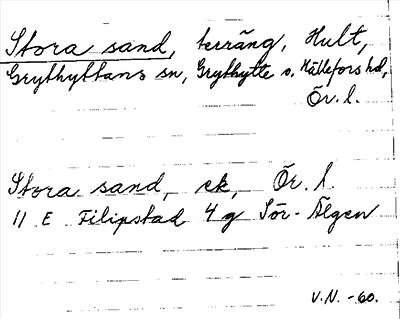 Stora sand, terräng, Hult,
Grythyttans sn, Grythytte o. Hällefors hd,
Ör. l.
Stora sand, ek, Ör. l.
11 E Filipstad 4 g Sör-Älgen
V.N. -60.